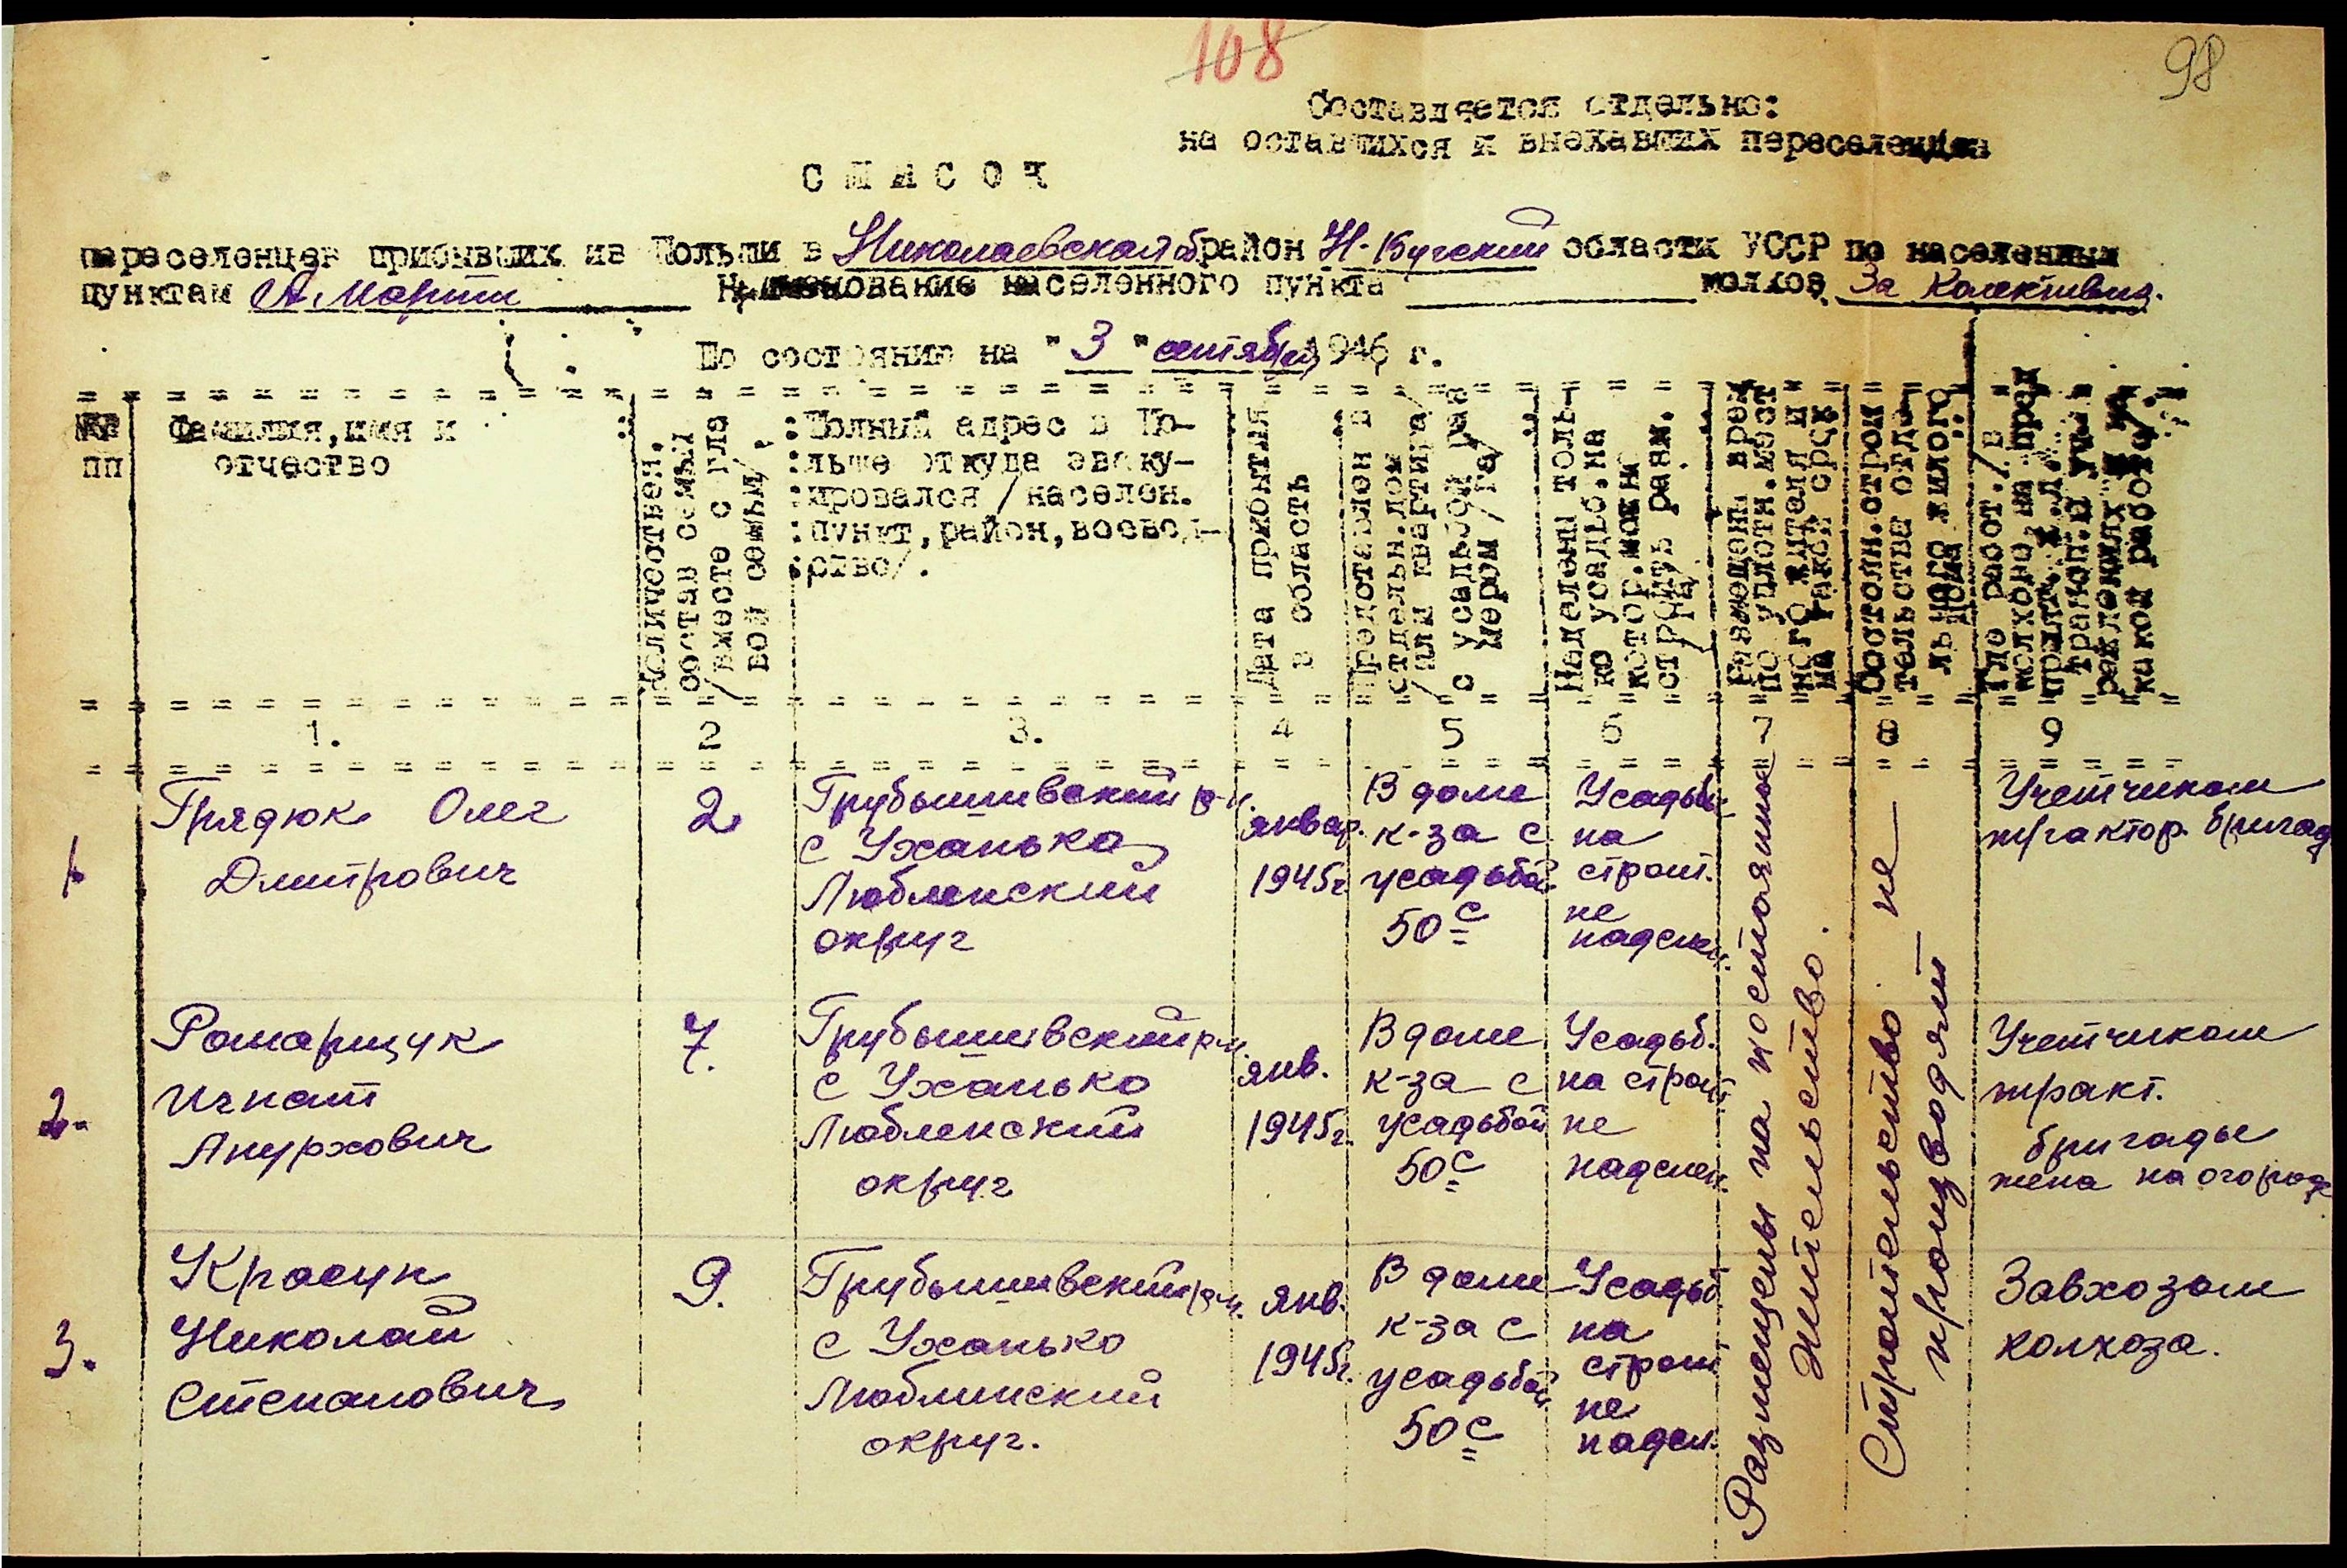 108
98
Составляется отдельно:
на оставшихся и выехавших переселенцев
СПИСОК
переселенцев прибывших из Польши в Николаевская об район Н-Бугский области УССР по населенным
пунктам А. Марти Наименование населенного пункта колхоз За Колективиз.
По состоянию на "3" сентября 1946 г.
№№ пп
Фамилия, имя и отчество
Количествен. состав семьи /вместе с главой семьи/.
Полный адрес в По-
льше откуда эваку-
ировался /населен.
пункт, район, воевод-
ство/.
Дата прибытия в область
Предоставлен в отдельн. дом /или квартира/ с усадьбой размером /га/
Наделены толь-
ко усадьб. на
котор. можно
строить разм.
га/
Размещены врем
по уплотн. мест
ного жителя и
на какой срок
Состоян. строи
тельства отде
льного жилого
дома
Где работ. /в
какой работе/
1. 2 3. 4 5 6 7 8 9
1.
Грядюк Олег
Дмитрович
2
Грубышивский р-н.
с Уханька
Люблинский
округ
январ.
1945г
В доме
к-за с
усадьбой
50 с
Усадьбы
на
строит.
не
наделен.
Учетчиком
трактор. бригад
2.
Ромарщук
Игнат
Анурхович
7.
Грубышивский рн.
с Уханько
Люблинский
округ
янв.
1945г.
В доме
к-за с
усадьбой
50 с
Усадьб.
на строит
не
наделен.
Учетчиком
тракт.
бригады
жена на огороде
3.
Красун
Николай
Степанович
9.
Грубышивский рн.
с Уханько
Люблинский
округ.
янв.
1945г.
В доме
к-за с
усадьбой
50 с
Усадьб
на
строит
не
надел.
Завхозом
колхоза.
Размещены на постоянное
жительство.
Строительство не
производят